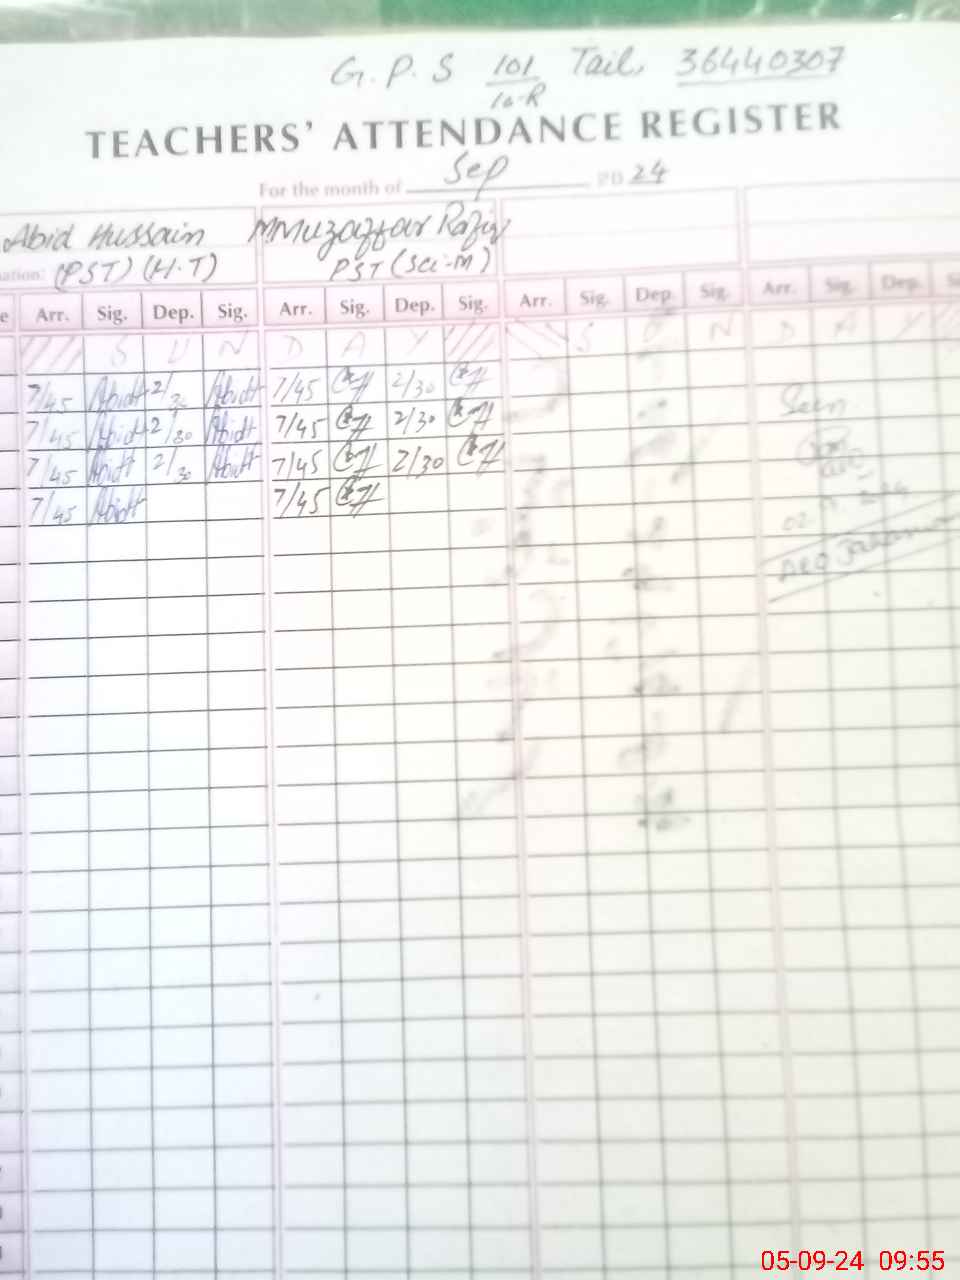 G.P.S 101/10-R Tail, 36440307
TEACHERS' ATTENDANCE REGISTER
For the month of Sep 20 24
Abid Hussain M Muzaffar Rafiq
nation: (PST) (H.T) PST (Sci-m)
e Arr. Sig. Dep. Sig. Arr. Sig. Dep. Sig. Arr. Sig. Dep. Sig. Arr. Sig. Dep. Si
S U N D A Y S U N D A Y
7/45 Abidt 2/30 Abidt 7/45 2/30
7/45 Abidt 2/30 Abidt 7/45 2/30
7/45 Abidt 2/30 Abidt 7/45 2/30
7/45 Abidt 7/45
Seen
AEO
05-09-24 09:55